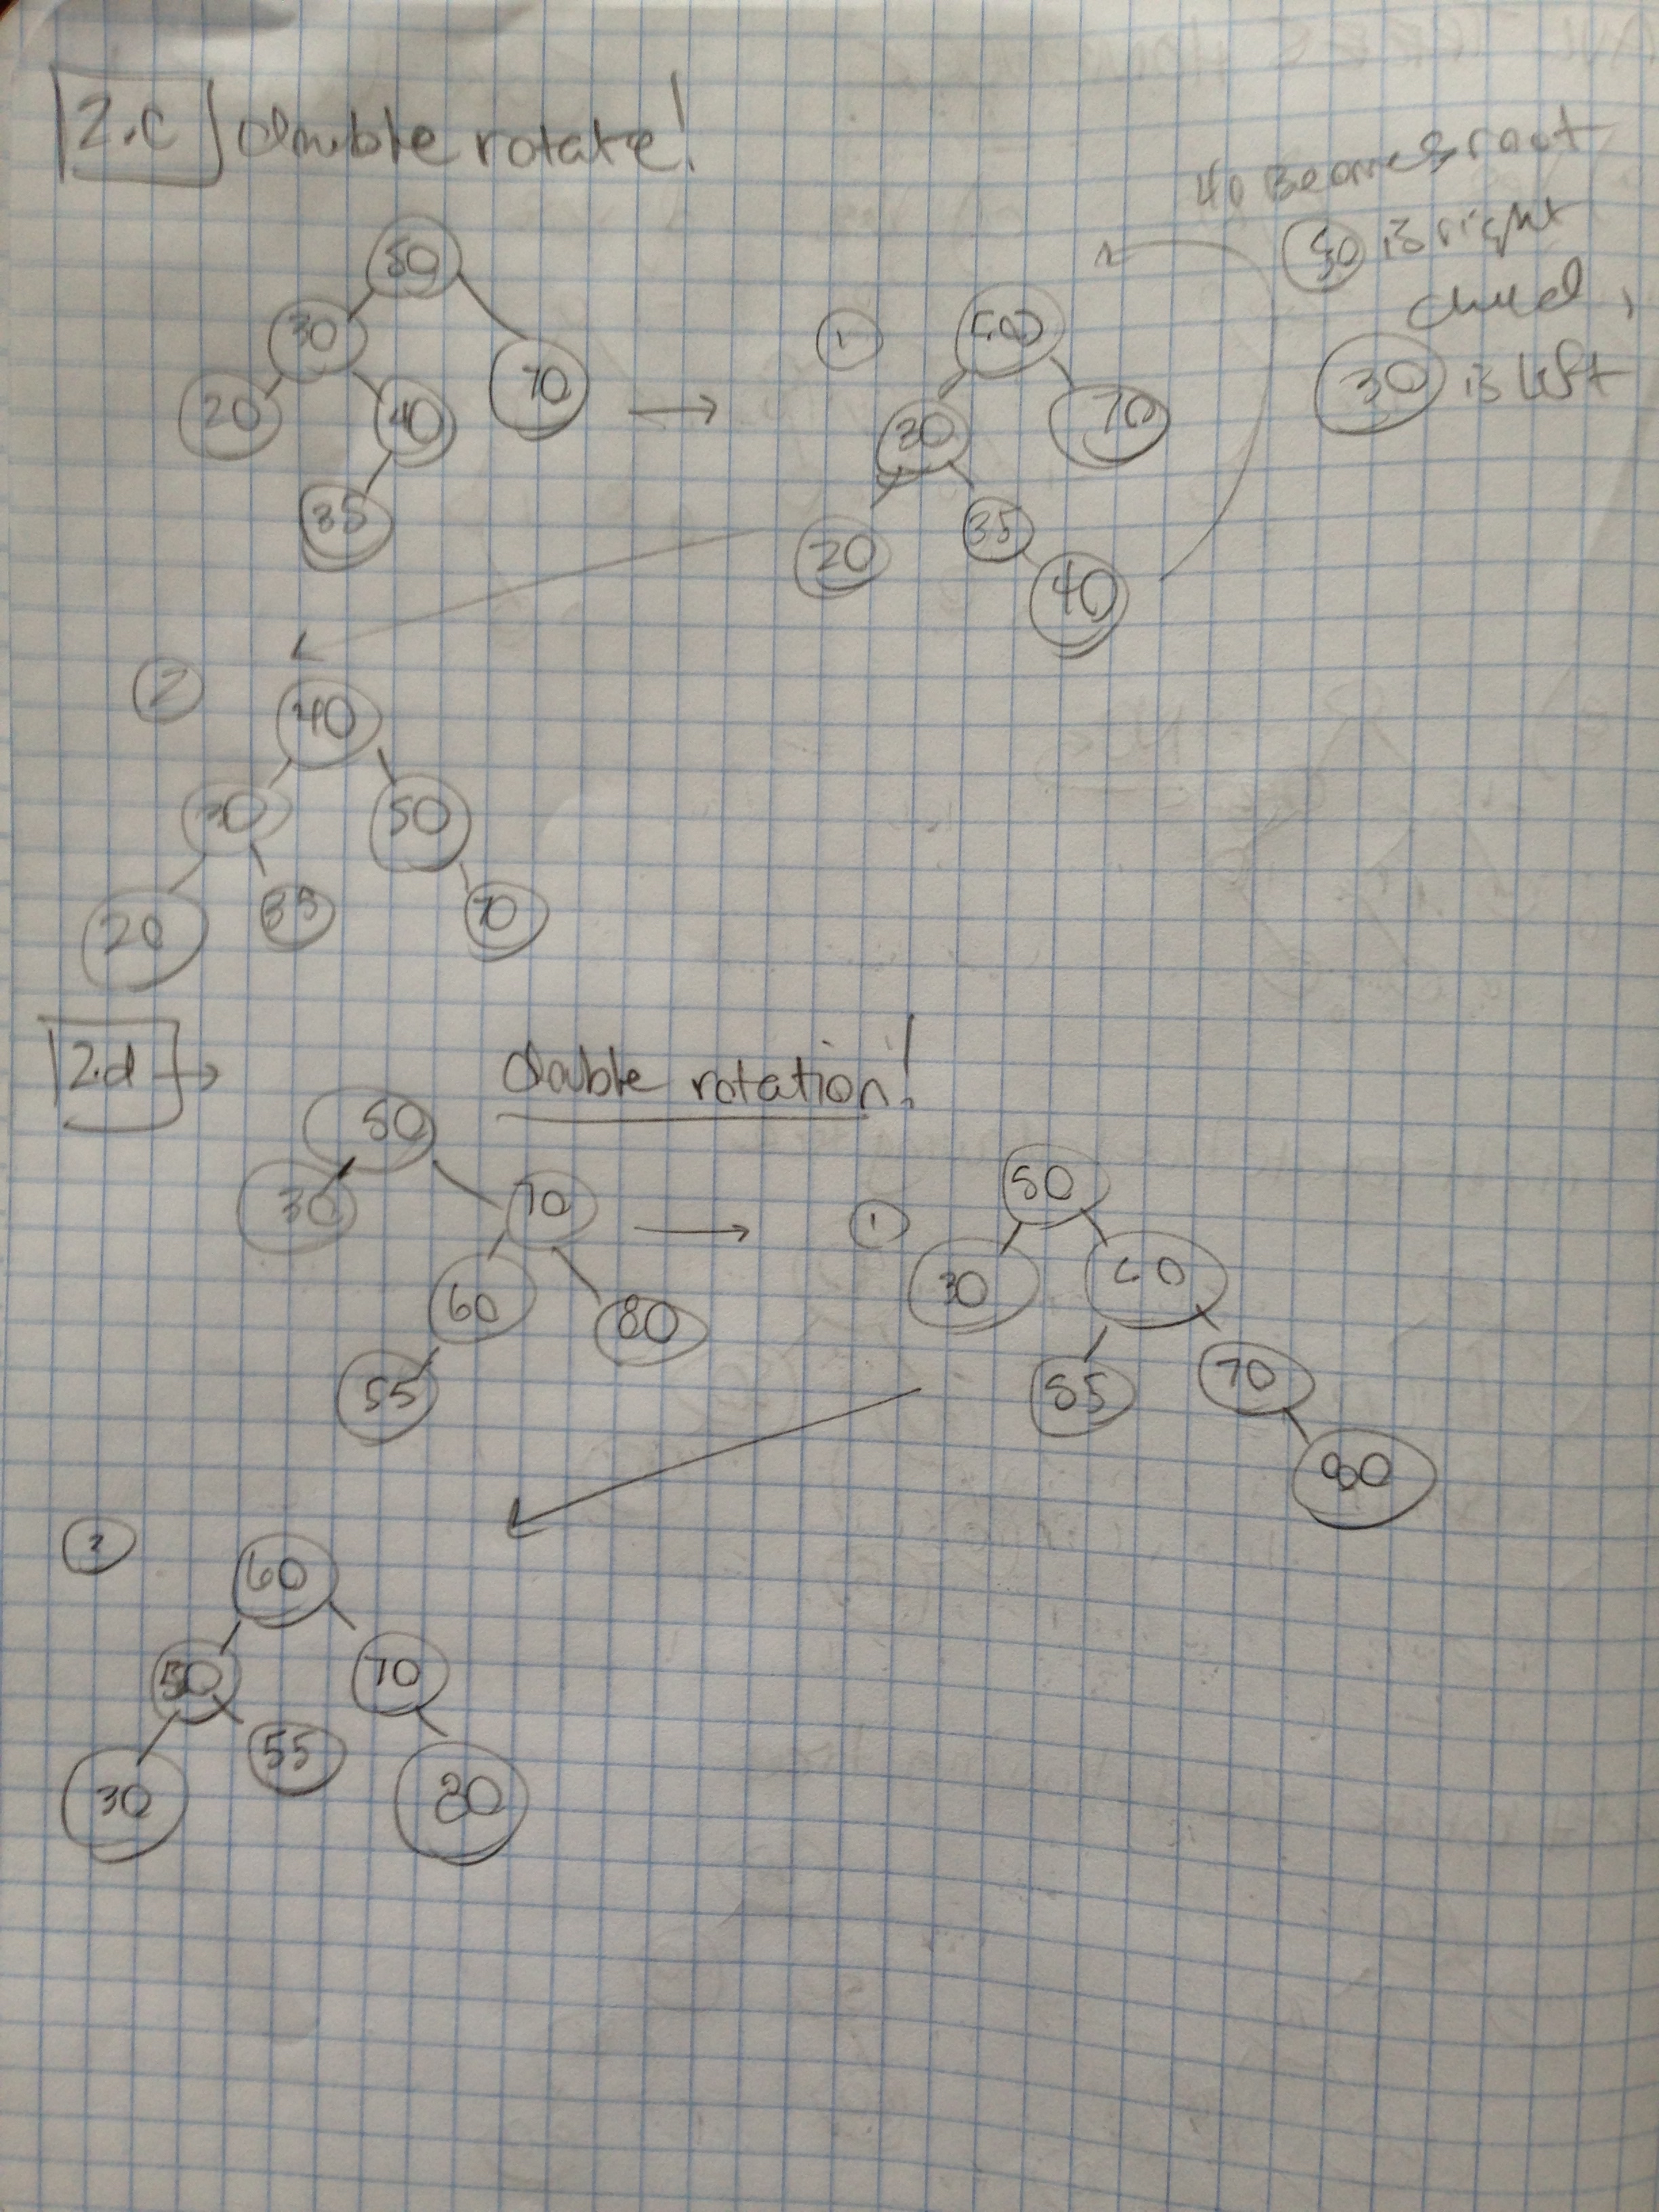 2.c double rotate!
50
30
70
20
40
35
1
50
70
30
20
35
40
40 Becomes root
50 is right
child,
30 is left
2
40
30
50
20
35
70
2.d
double rotation!
50
30
70
60
80
55
1
50
30
60
55
70
80
2
60
50
70
30
55
80